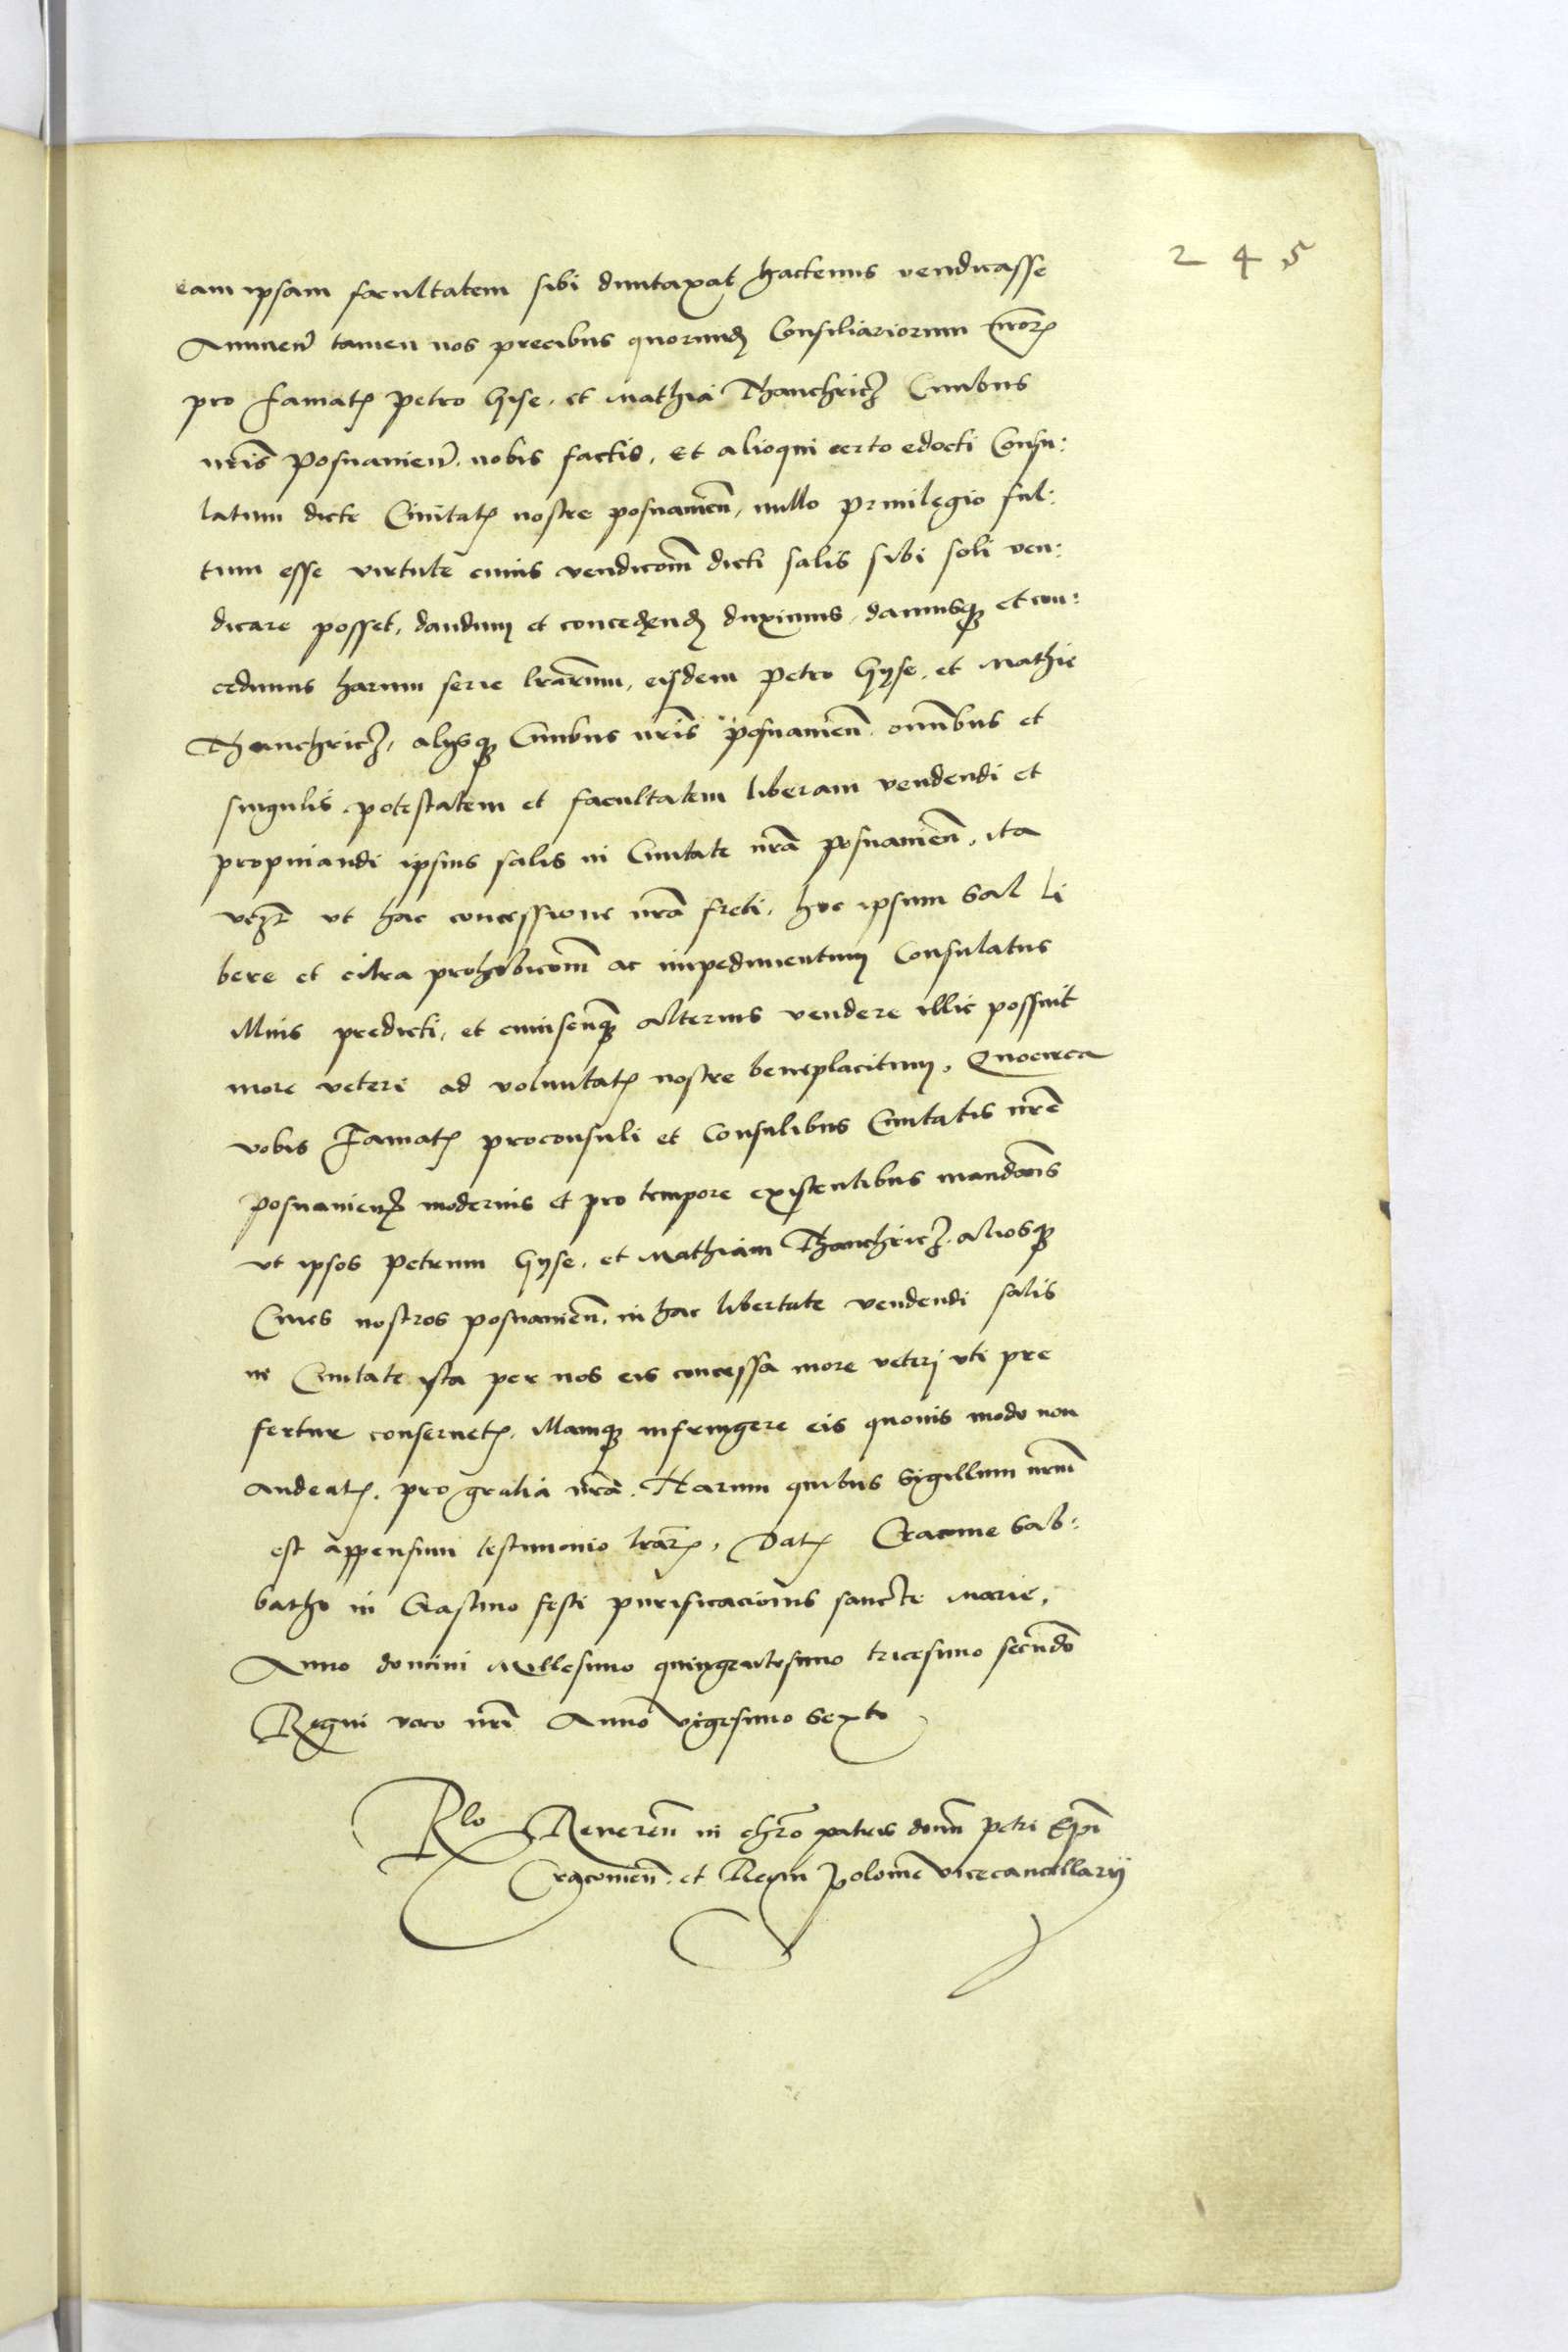 245
eam ipsam facultatem sibi duntaxat hactenus vendicasse
Annuen̄ tamen nos precibus quorund̄ Consiliariorum nr̄orꝝ
pro famatꝭ Petro Gise, et Mathia Thanchricz Civibus
nrīs Posnanien̄. nobis factis, Et alioqui certo edocti Consu:
latum dicte Civitatꝭ nostre posnanien̄, nullo privilegio ful:
tum esse virtute cuius vendicōnem dicti salis sibi soli ven:
dicare posset, dandum et concedend̄ duximus, damusqꝫ et con:
cedimus harum serie lrārum, eisdem Petro Gyse, et Mathie
Thanchricz, alysqꝫ Civibus nrīs posnanien̄. omnibus et
singulis potestatem et facultatem liberam vendendi et
propinandi ipsius salis in Civitate nrā Posnanien̄, ita
vt hac concessione nrā freti, hoc ipsum Sal li
bere et citra prohibicōnem ac impedimentum Consulatus
illius predicti, et cuiuscunqꝫ alterius vendere illic possint
more veteri ad voluntatꝭ nostre beneplacitum, Quocirca
vobis Famatꝭ proconsuli et Consulibus Civitatis nrē
Posnanien̄ modernis et pro tempore existentibus mandam̄s
vt ipsos Petrum Gyse, et Mathiam Thanchricz aliosqꝫ
Cives nostros posnanien̄, in hac libertate vendendi salis
in Civitate ista per nos eis concessa more veteri vti pre
fertur conservetꝭ. Illamqꝫ infringere eis quovis modo non
audeatꝭ, pro gratia nrā. Harum quibus Sigillum nrūm
est appensum testimonio lrārꝝ, Datꝭ Cracovie Sab:
batho in Crastino festi purificaciōnis sancte Marie,
Anno domini Millesimo quingentesimo tricesimo secundo
Regni vero nrī Anno vigesimo Sexto
Rlō Reveren̄ in chrō patris dom̄ Petri Epī
Cracovien̄. et Regni Polonie vicecancellarij